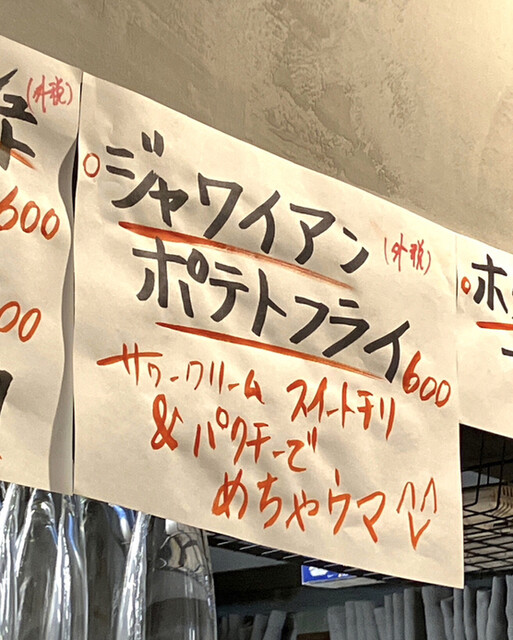 (外税)
600
00
ジャワイアン
(外税)
ポテトフライ 600
サワークリーム スイートチリ
&パクチーで
めちゃウマ
ホ